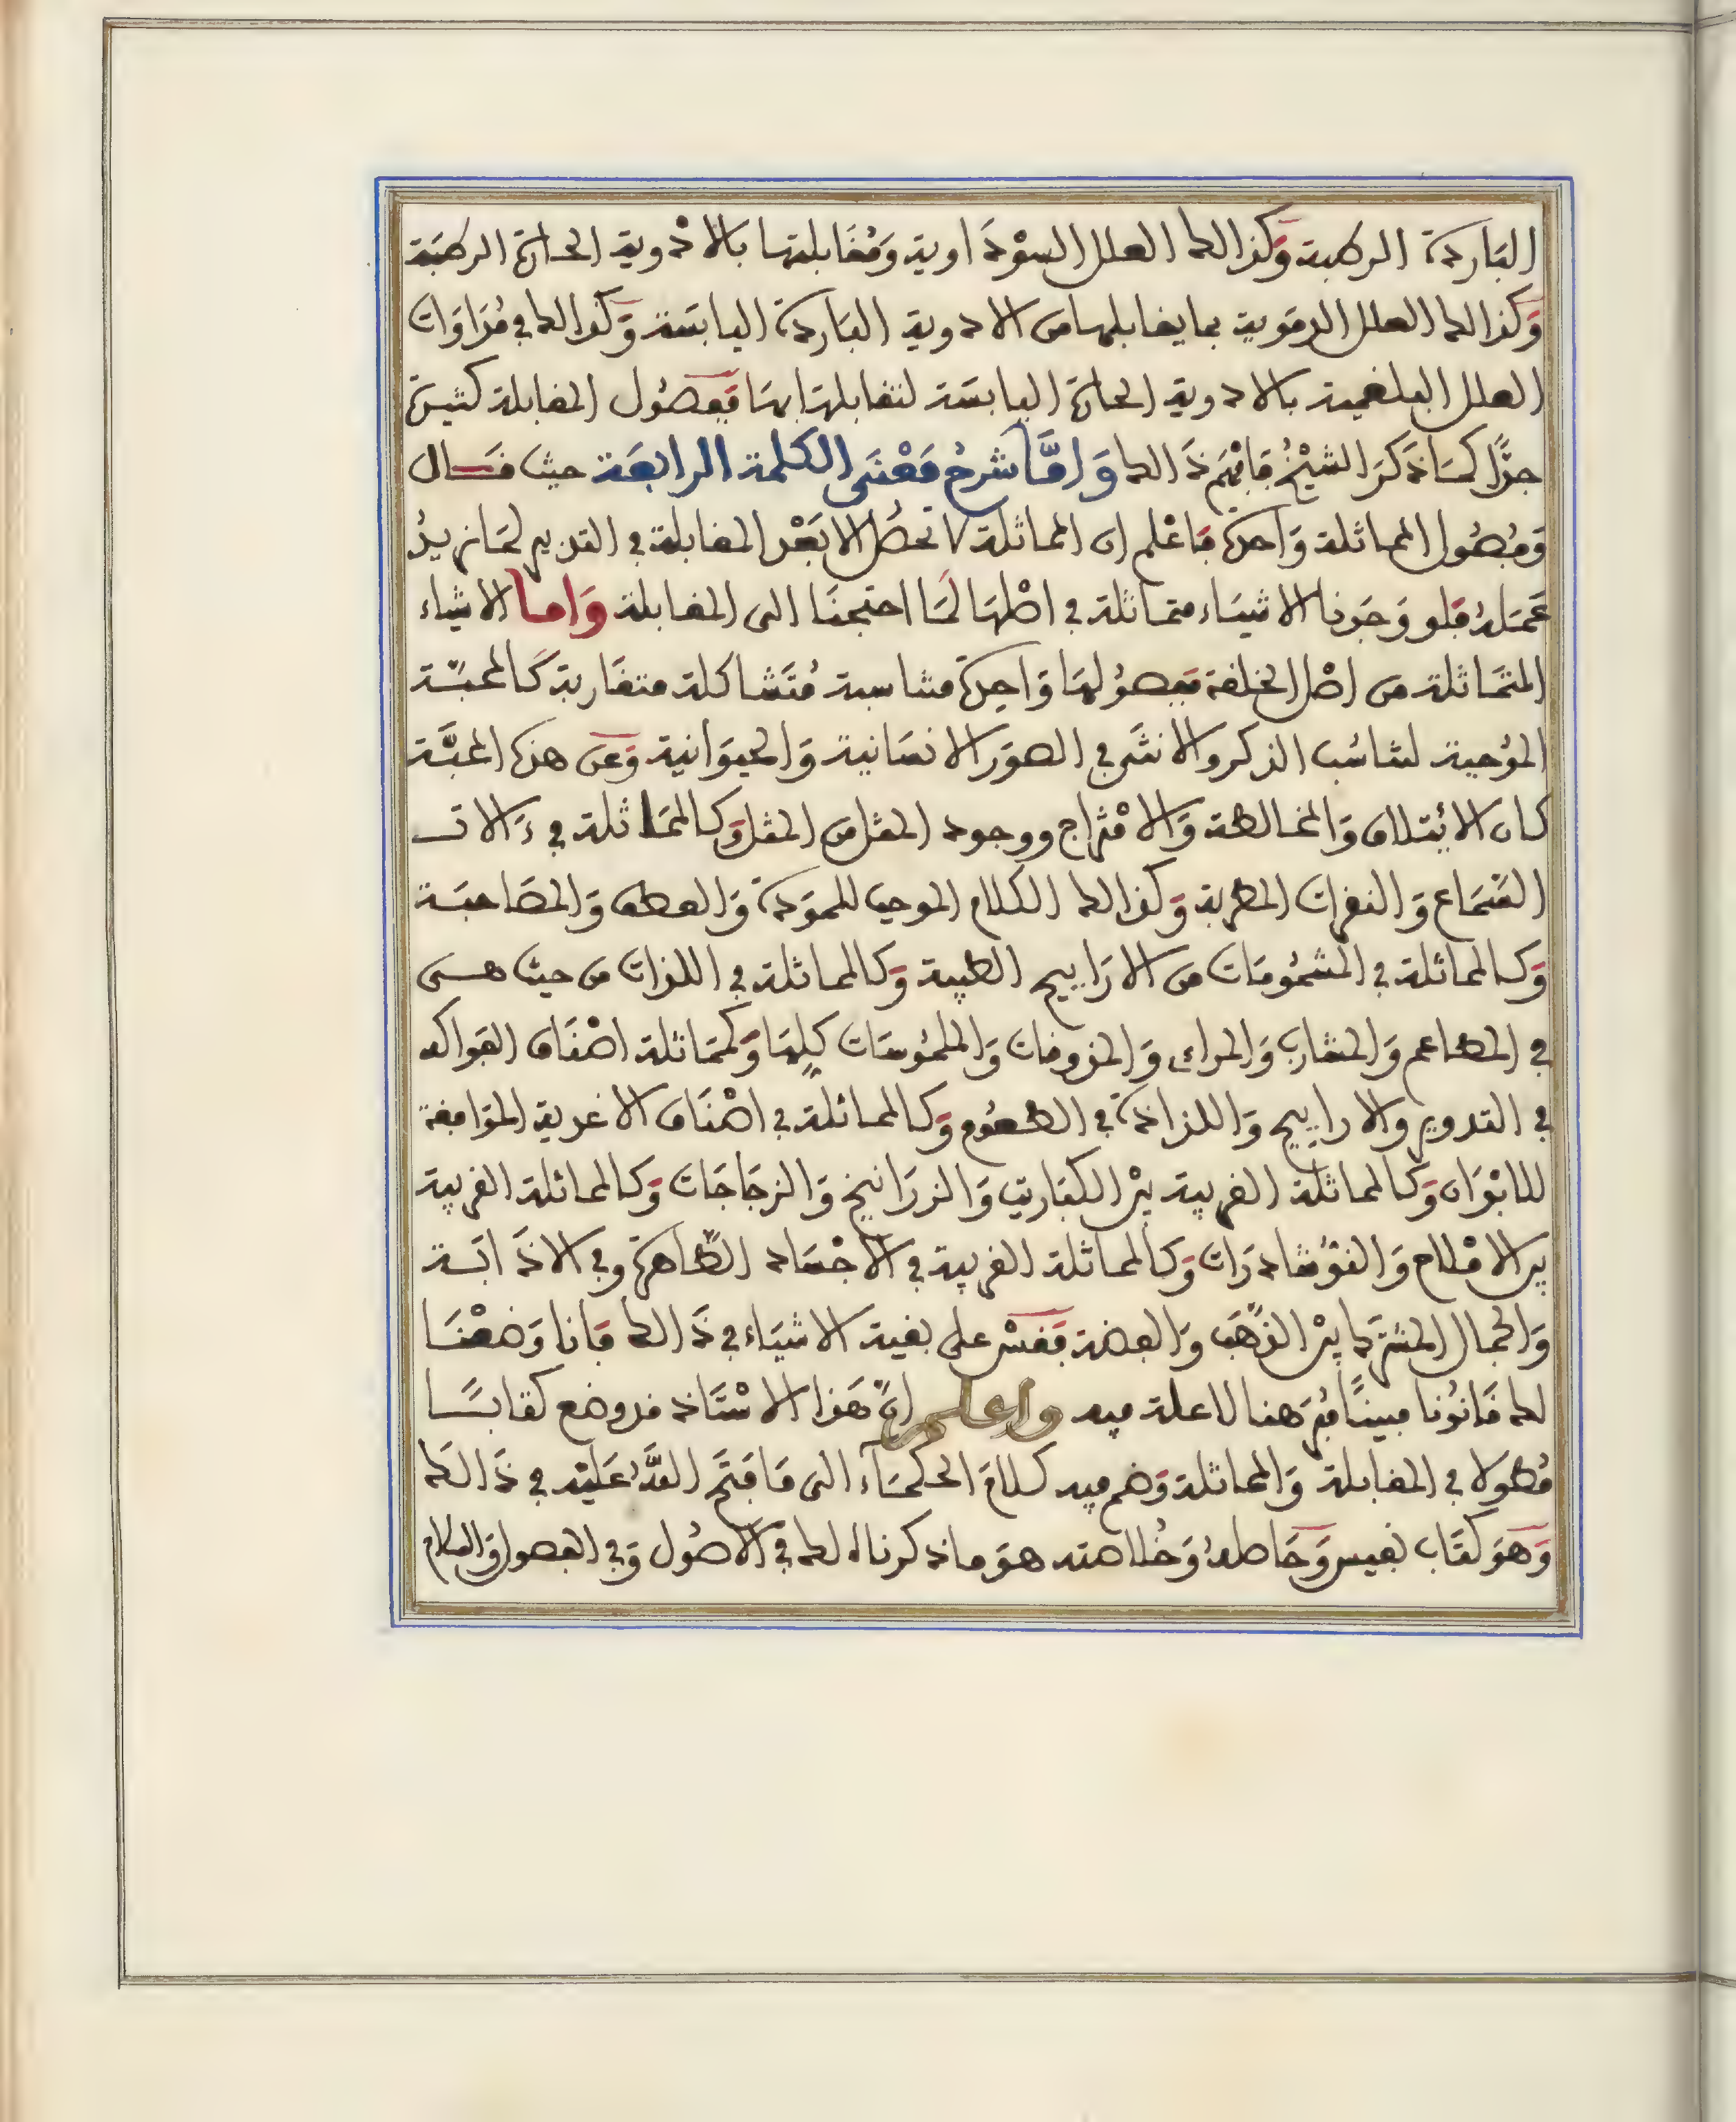 الباردة الرطبة وكذالك العلل السوْدَاوية وَمُقَابلتها بالادْوية الحارة الرطبَة
وَكذالك العلل الدمَوية بما يقابلها من الادوية البَاردة اليابسَة وَكذالك في مُدَاوَات
العلل البلغمية بالادوية الحارة اليابسَة لتقابلها بهَا ففصُول المقابلة كثيرة
جدًّا كمَا ذَكرَ الشيْخُ فافْهَم ذَالك وَامَّا شرحُ مَعْنَى الكلمة الرابعَة حيث قَال
وَفُصُول المماثلة وَاحدة فاعْلم ان المماثلة لا تحصُل الا بَعْد المقابلة في التدبير لمَا نريدُ
عَمَلهُ فلو وَجَدنا الاشيَاء متماثلة في اصْلهَا لَمَا احتجنَا الى المقابلة وَاما الاشياء
المتمَاثلة من اصْل الخلقة ففصُولهَا وَاحِدة متناسبة مُتَشاكلة متقَاربة كَالمحبّة
المؤجبة لتناسُب الذكر والانثَى في الصوَر الانسَانية وَالحيوَانية وَعن هذه المحبَّة
كان الائتلاف وَالمخالطة وَالامْتزاج ووجود المثل من المثل وَكالممَاثلة في ءَالات
السَّمَاع وَالنغمات المطربة وَكذالك الكلام الموجب للموَدة وَالعطف وَالمصَاحبَة
وَكالمماثلة في المشمُومَات من الارَاييح الطيبة وَكالمماثلة في اللذات من حيث هى
في المطاعم وَالمشارب وَالمراءى وَالمذوقات وَالملمُوسَات كلِّهَا وَكممَاثلة اصْنَاف الفوَاكه
في التدوير وَالاراييح وَاللذاذة في الطعُوم وَكالمماثلة في اصْنَاف الاغدية الموَافقة
للابْدَان وَكالمماثلة القريبة بيْن الكبَاريت وَالزرَانيخ وَالزجَاجَات وَكالمماثلة القريبة
بين الامْلاح وَالنوُشاذرَات وَكالمماثلة القريبة في الاجْسَاد الطَّاهرة وفي الاذَابَة
وَالجمال المشترك بيْن الذهَب وَالفضة فَقسْ على بقية الاشيَاء في ذَالك فَانا وَضعْنَا
لك قَانوُنا مبينًا مُبَرهنا لا علة فيه واعلم انّ هَذا الاسْتَاذ قد وضع كتابًا
مُطولا في المقابلة وَالمماثلة وَضم فيه كلامَ الحكمَآء الى مَا فتَح اللهُ عَليْه في ذَالكَ
وَهوَ كتَاب نفيس وَحَاصلهُ وَخُلاصته هوَ ماذكرناه لك في الاصُول وَفي الفصول وَالسلام